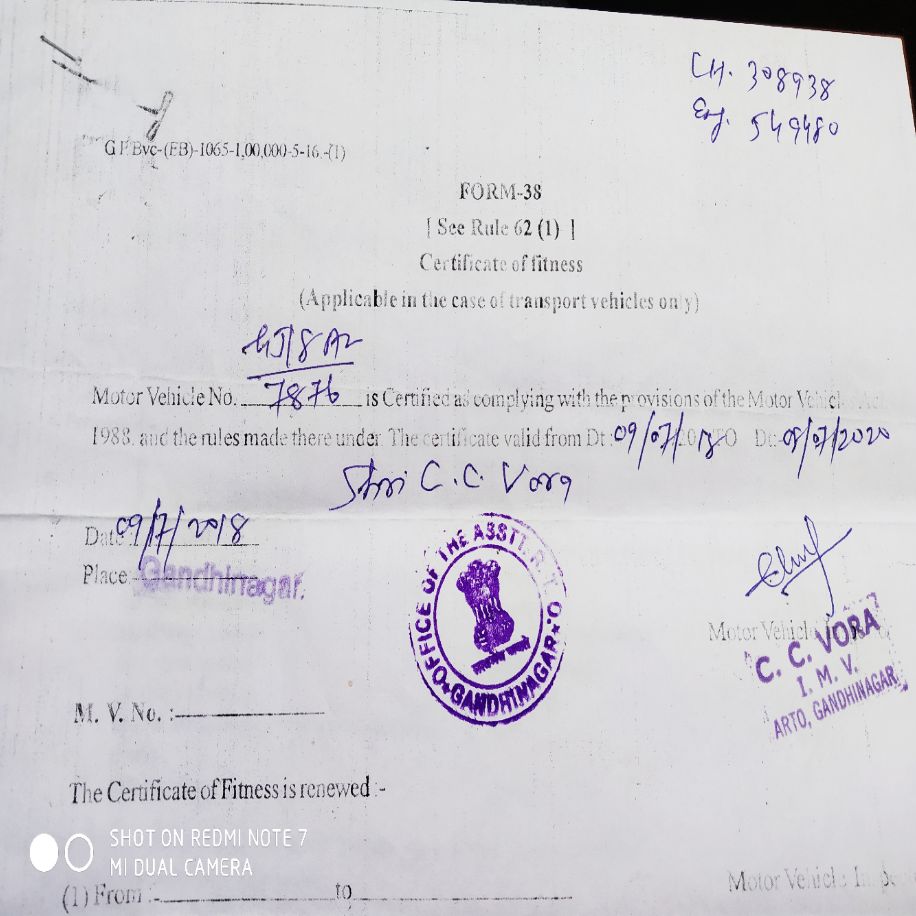 CH. 308938
Eng. 549480
G P Bvc-(FB)-1065-1,00,000-5-16.-(1)
FORM-38
[ See Rule 62 (1) ]
Certificate of fitness
(Applicable in the case of transport vehicles only)
GJ18 AZ
Motor Vehicle No. 7876 is Certified as complying with the provisions of the Motor Vehicle Act
1988. and the rules made there under. The certificate valid from Dt : 09/07/2018 TO Dt:- 08/07/2020
Shri C.C. Vora
Date : 09/7/2018
Place:- Gandhinagar.
OFFICE OF THE ASSTT. R. T. O.
GANDHINAGAR
Motor Vehicle
C. C. VORA
I. M. V.
ARTO, GANDHINAGAR
M. V. No. :-
The Certificate of Fitness is renewed :-
SHOT ON REDMI NOTE 7
MI DUAL CAMERA
(1) From :- to
Motor Vehicle Inspec